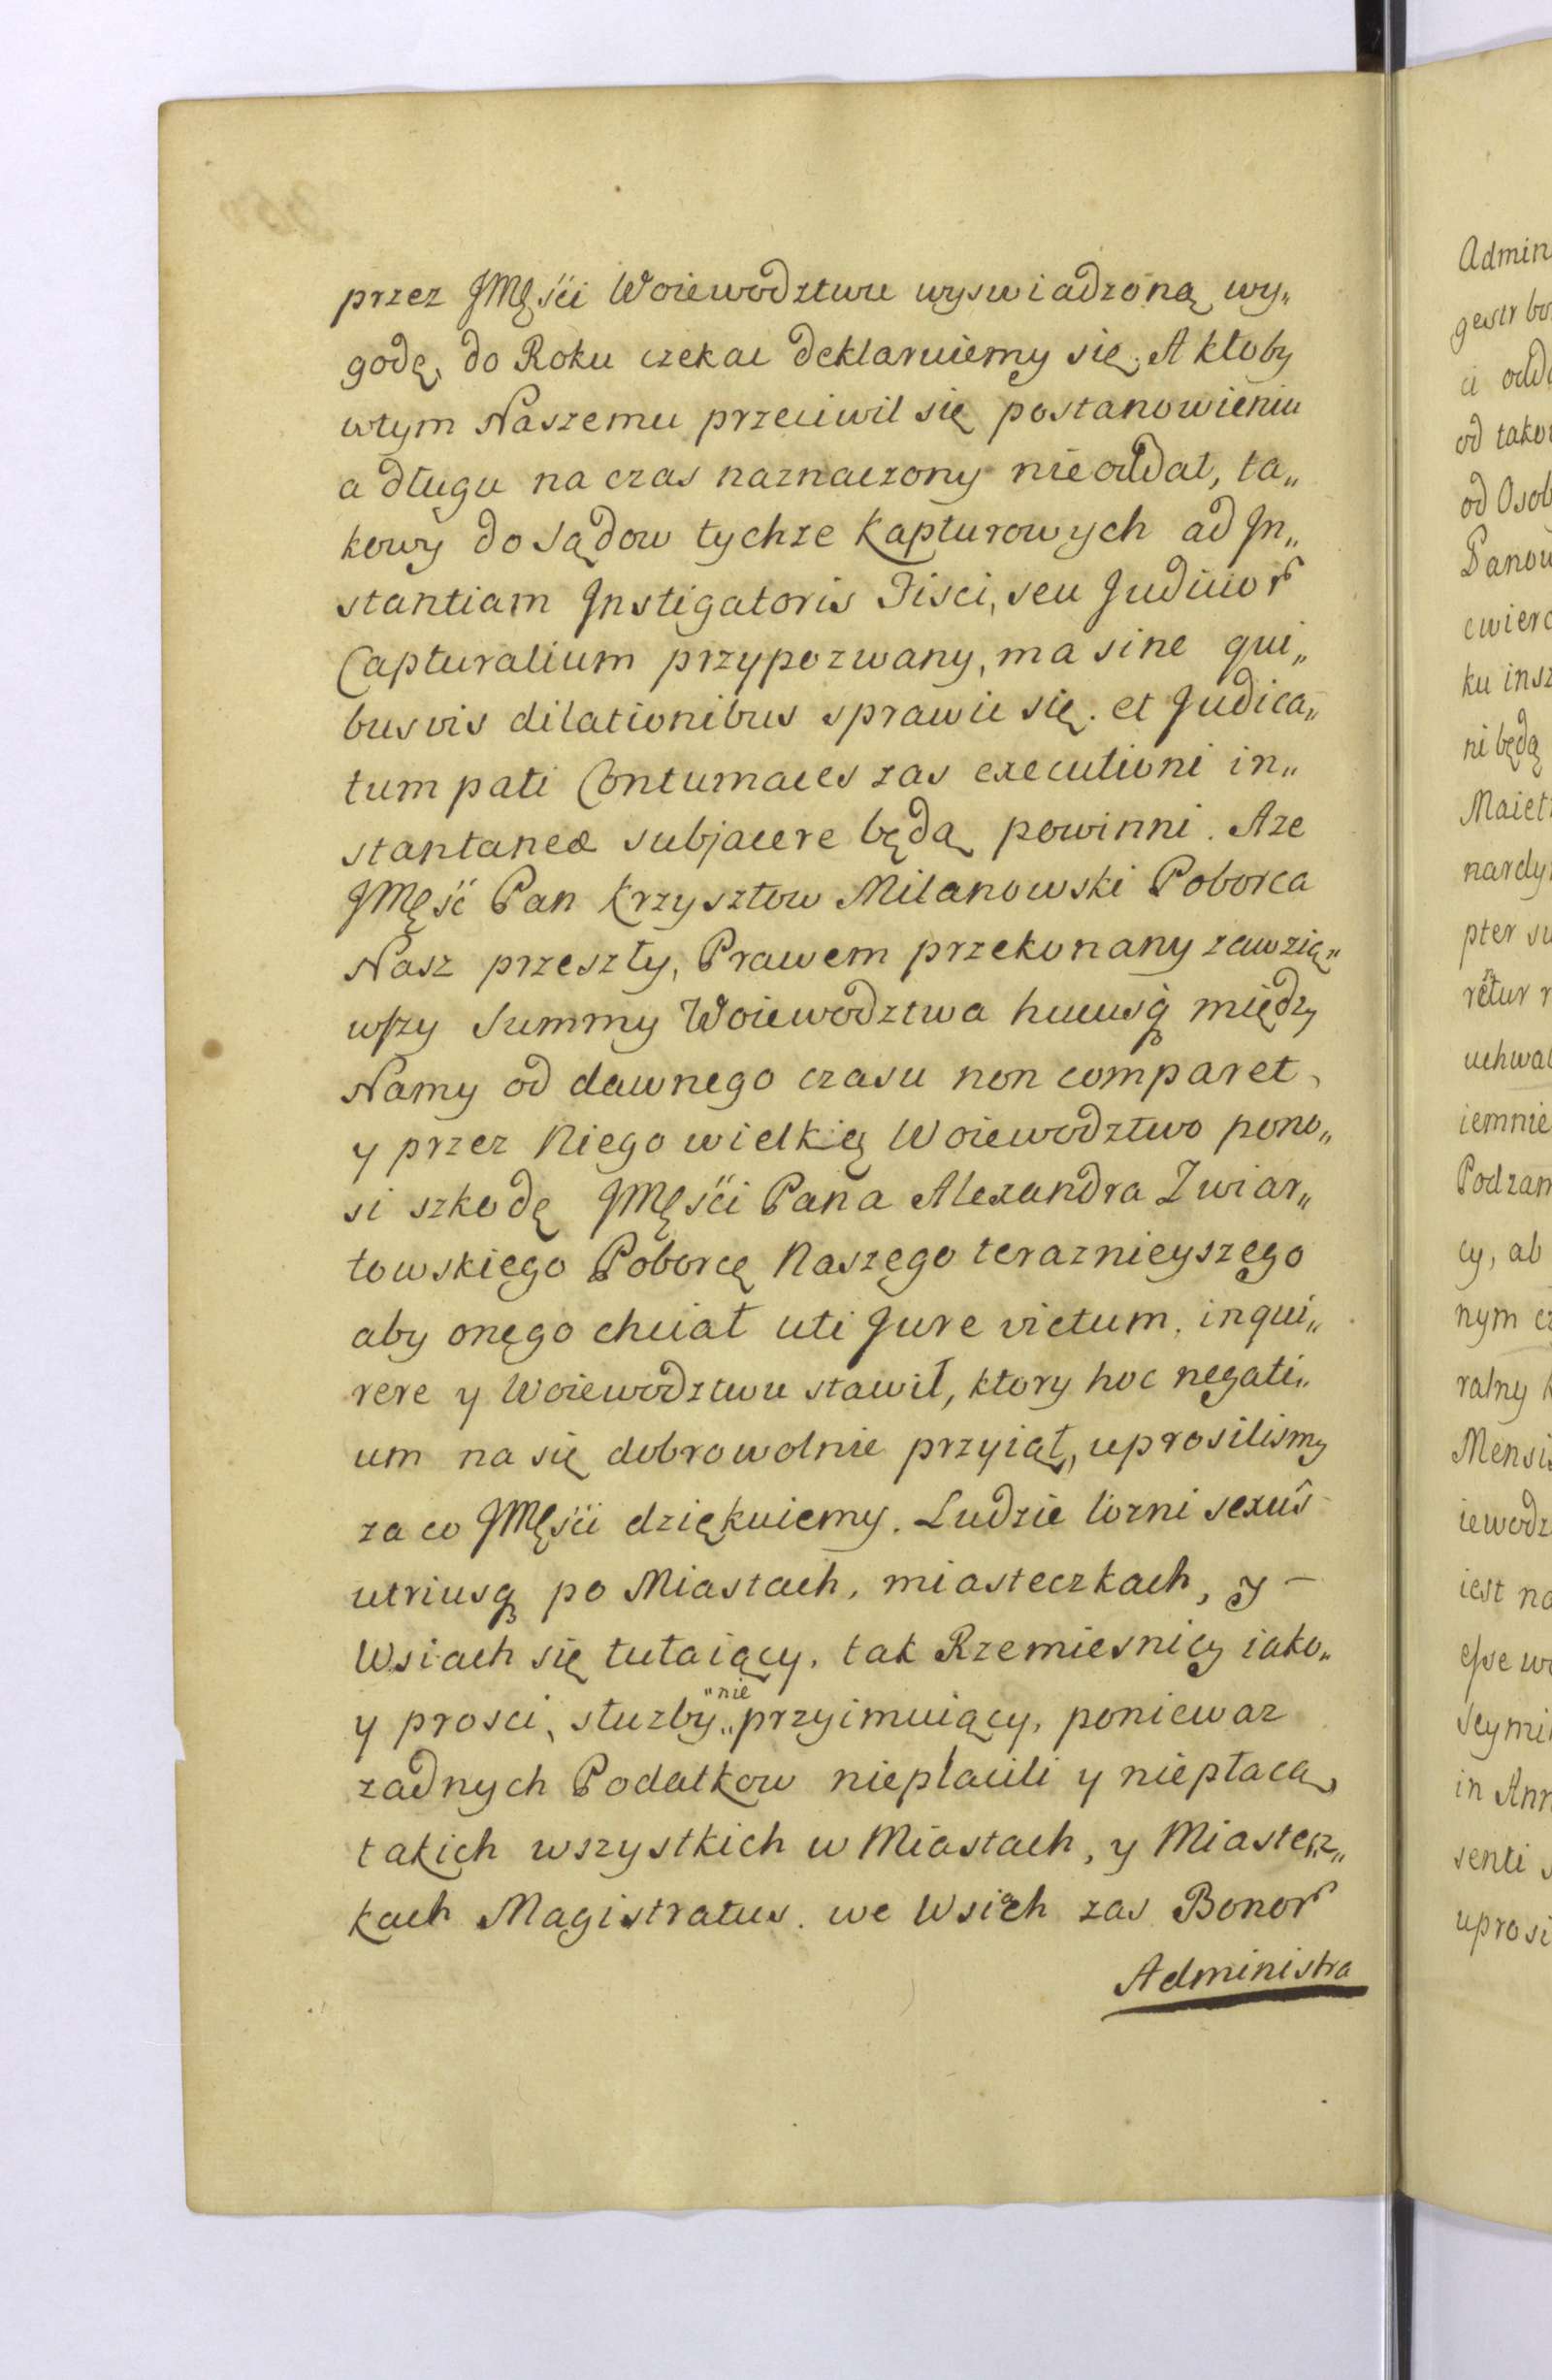 przez JMęści Woiewodztwu wyswiadzoną wy„
godę, do Roku czekac deklaruiemy się. A ktoby
wtym Naszemu przeciwil się postanowieniu
a długu na czas naznaczony nieoddał, ta„
kowy do Sądow tychze Kapturowych ad In„
stantiam Instigatoris Fisci, seu Judicior
Capturalium przypozwany, ma sine qui„
busvis dilationibus sprawic się. et Judica„
tum pati Contumaces zas executioni in„
stantaneæ subjacere będą powinni. Aze
JMęść Pan Krzysztow Milanowski Poborca
Nasz przeszły, Prawem przekonany zawzią„
wszy Summy Woiewodztwa hucusq między
Namy od dawnego czasu non comparet,
y przez Niego wielkię Woiewodztwo pono„
si szkodę JMęści Pana Alexandra Zwiar„
towskięgo Poborcę Naszęgo teraznieyszęgo
aby onęgo chciał uti Jure victum, inqui„
rere y Woiewodztwu stawił, ktory hoc negati„
um na się dobrowolnie przyiął, uprosilismy
za co JMęści dziękuiemy. Ludzie lozni sexûs
utriusq po Miastach, miasteczkach, y –
Wsiach się tułaiący, tak Rzemiesnicy iako„
y prosci, służby „nie„ przyimuiący, poniewaz
zadnych Podatkow niepłacili y niepłacą,
takich wszystkich w Miastach, y Miastecz„
kach Magistratus. we Wsiach zas Bonor
Administra
Admin
gestr bo
ci odd
od tako
od Osob
Panow
cwierc
ku insz
ni będą
Maiet
nardy
pter su
retur r
uchwal
iemnie
Podzam
cy, ab
nym cz
ralny k
Mensis
iewodz
iest na
esse wo
Seymi
in Ann
senti s
uprosi